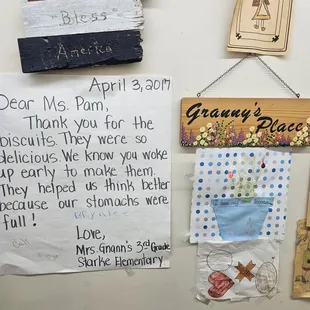 "Bless"
America
April 3, 2017
Dear Ms. Pam,
Thank you for the
biscuits. They were so
delicious. We know you woke
up early to make them.
They helped us think better
because our stomachs were
full!
Love,
Mrs. Gnann's 3rd Grade
Starke Elementary
Granny's
Place